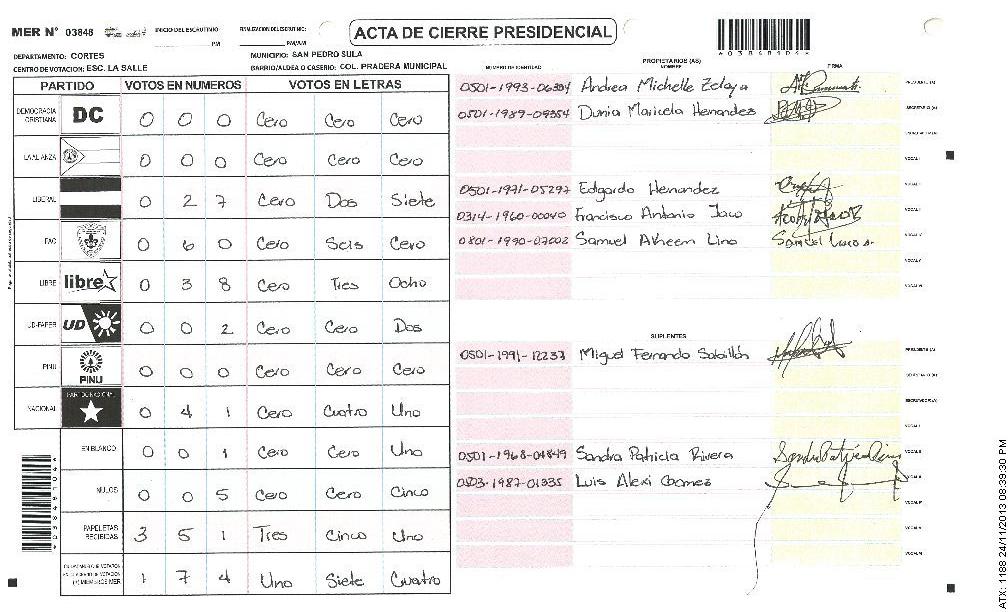 MER Nº 03848
INICIO DEL ESCRUTINIO
PM
FINALIZACION DEL ESCRUTINIO:
PM/AM
ACTA DE CIERRE PRESIDENCIAL
DEPARTAMENTO: CORTES
MUNICIPIO: SAN PEDRO SULA
CENTRO DE VOTACION: ESC. LA SALLE
BARRIO/ALDEA O CASERIO: COL. PRADERA MUNICIPAL
PARTIDO VOTOS EN NUMEROS VOTOS EN LETRAS
DEMOCRACIA CRISTIANA DC 0 0 0 Cero Cero Cero
LA ALIANZA 0 0 0 Cero Cero Cero
LIBERAL 0 2 7 Cero Dos Siete
PAC 0 6 0 Cero Seis Cero
LIBRE libre 0 3 8 Cero Tres Ocho
UD-FAPER UD 0 0 2 Cero Cero Dos
PINU PINU 0 0 0 Cero Cero Cero
NACIONAL PARTIDO NACIONAL 0 4 1 Cero Cuatro Uno
EN BLANCO 0 0 1 Cero Cero Uno
NULOS 0 0 5 Cero Cero Cinco
PAPELETAS RECIBIDAS 3 5 1 Tres Cinco Uno
(+) MIEMBROS MER 1 7 4 Uno Siete Cuatro
PROPIETARIOS (AS)
NUMERO DE IDENTIDAD NOMBRE FIRMA
0501-1993-06384 Andrea Michelle Zelaya PRESIDENTE (A)
0501-1989-09354 Dunia Maricela Hernandez SECRETARIO (A)
ESCRUTADOR (A)
VOCAL I
0501-1971-05297 Edgardo Hernandez VOCAL II
0314-1960-00040 Francisco Antonio Jaco VOCAL III
0801-1990-07002 Samuel Akeem Lino VOCAL IV
VOCAL V
VOCAL VI
SUPLENTES
0501-1991-12237 Miguel Fernando Sabillón PRESIDENTE (A)
SECRETARIO (A)
ESCRUTADOR (A)
VOCAL I
0501-1968-04849 Sandra Patricia Rivera VOCAL II
0503-1987-01335 Luis Alexi Gomez VOCAL III
VOCAL IV
VOCAL V
VOCAL VI
ATX: 1188 24/11/2013 08:39:30 PM